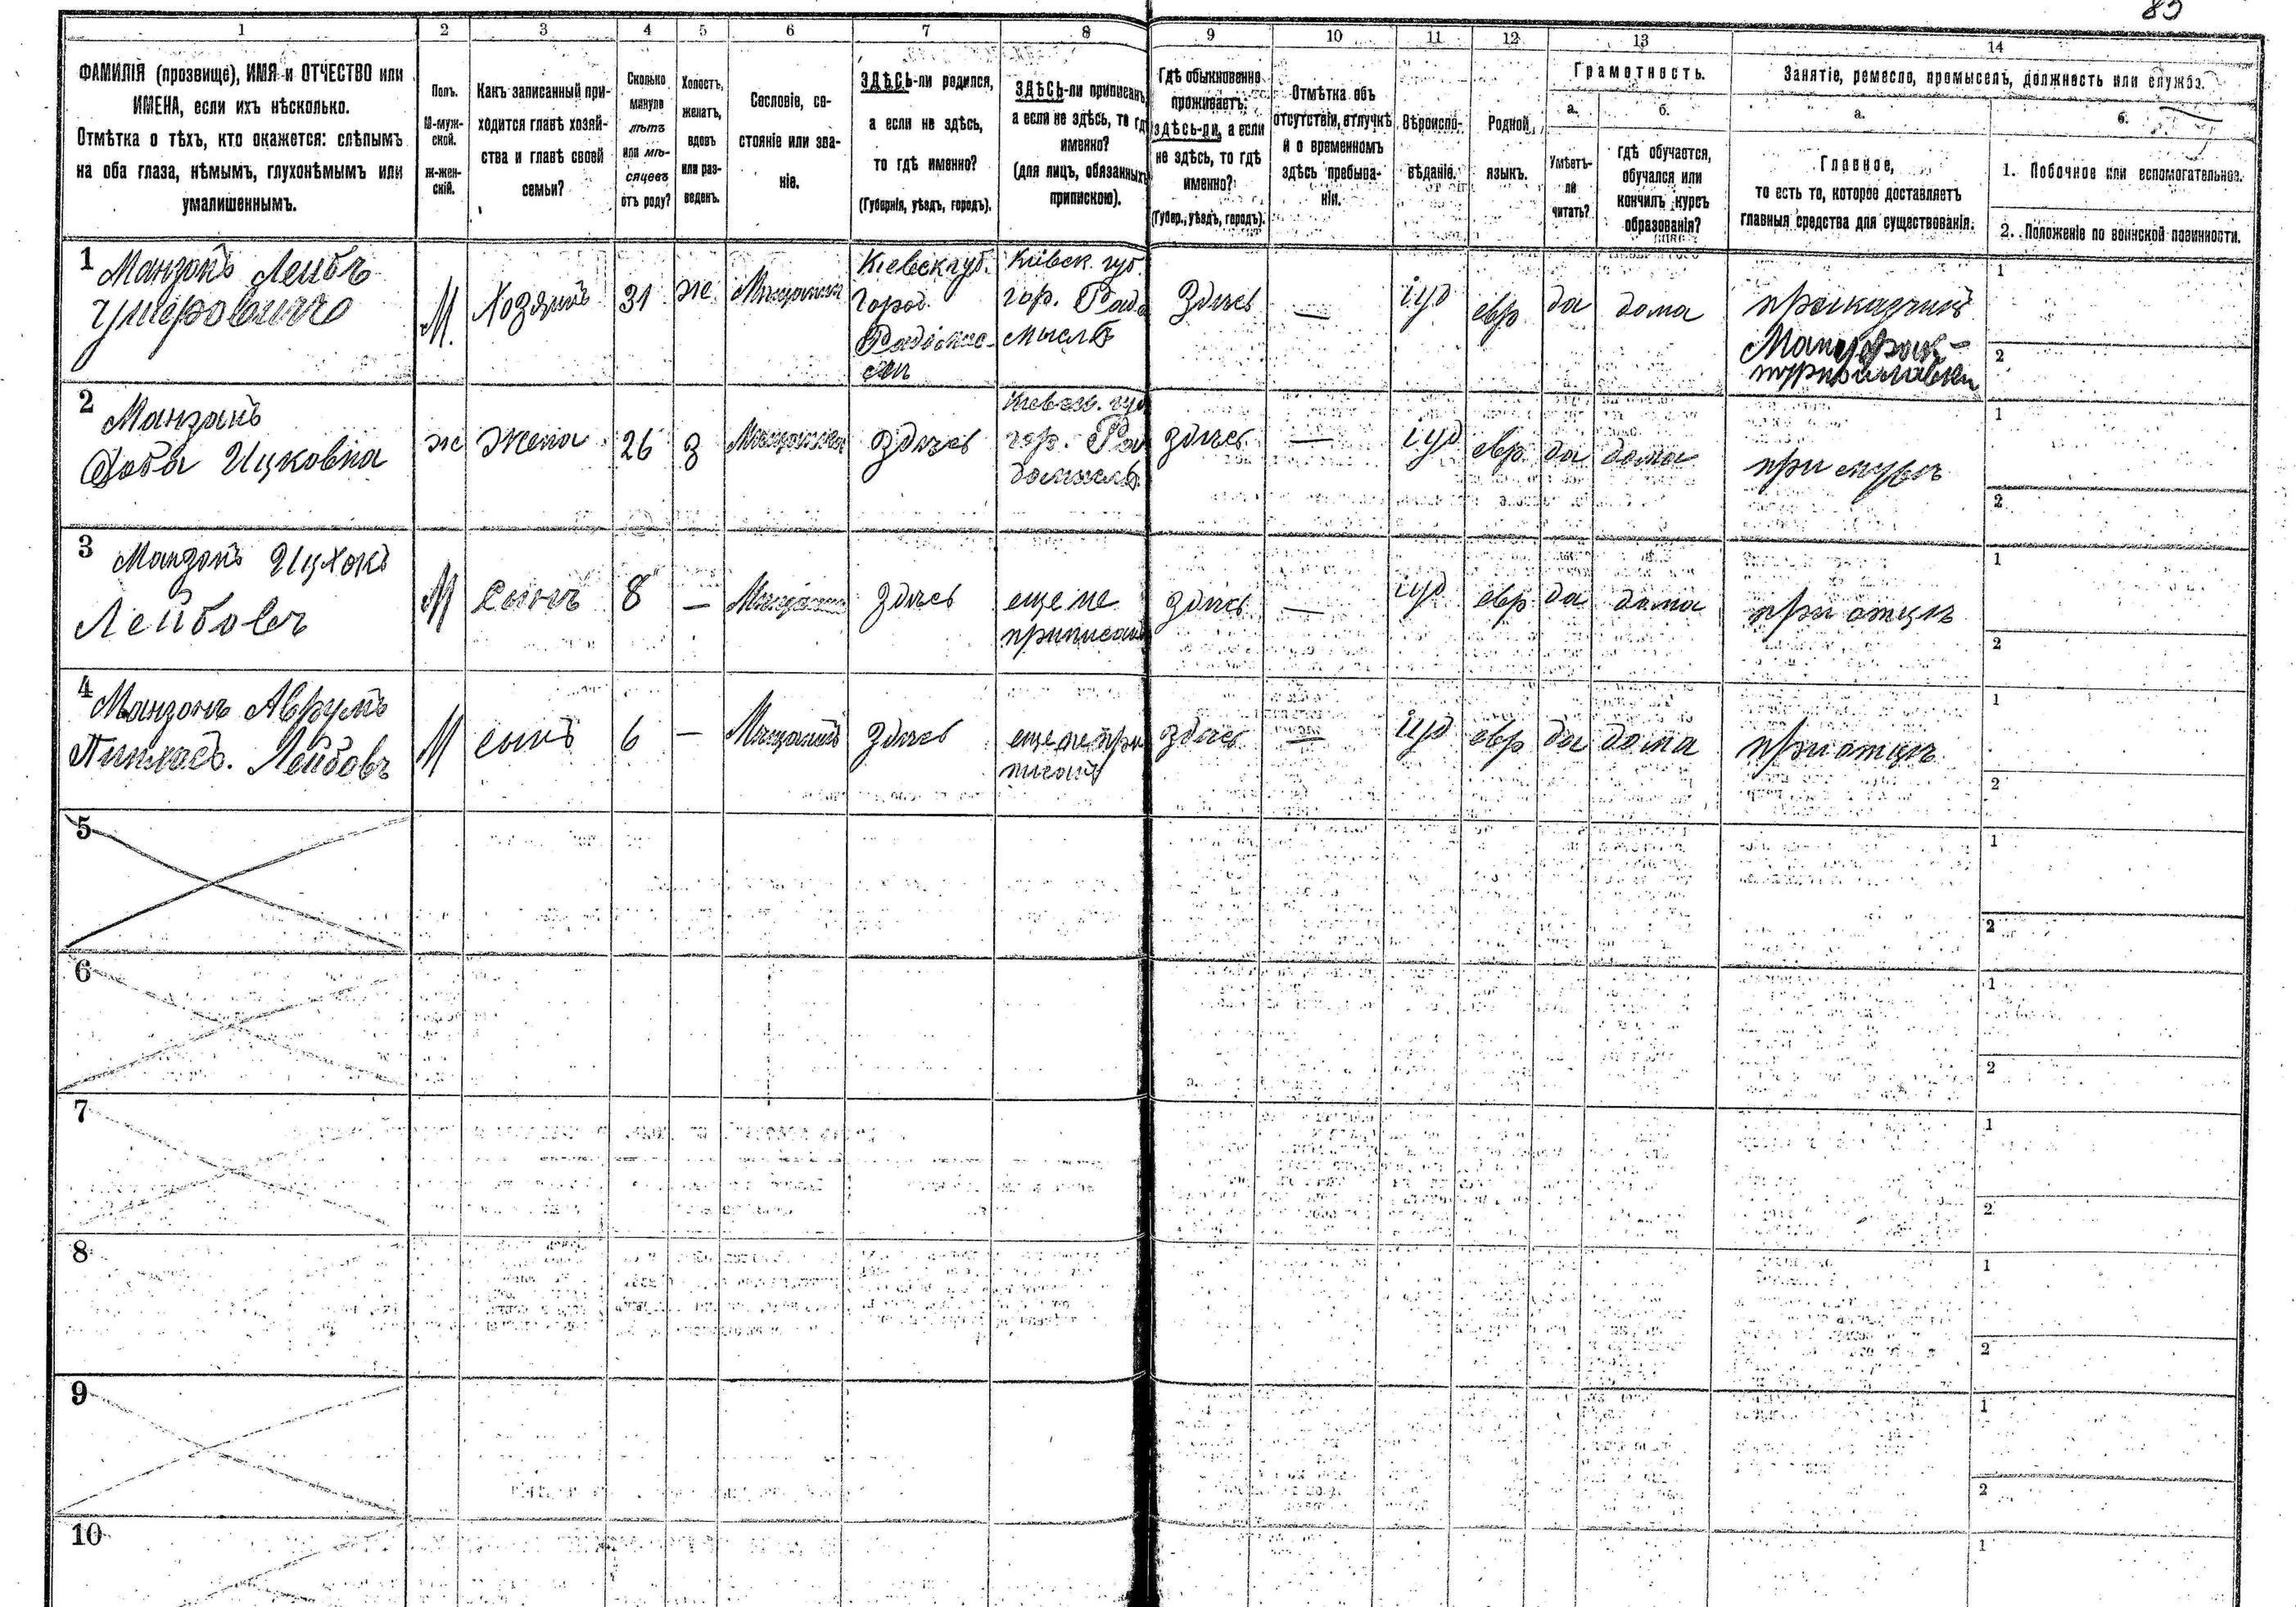 83
1 2 3 4 5 6 7 8 9 10 11 12 13 14
ФАМИЛІЯ (прозвище), ИМЯ и ОТЧЕСТВО или
ИМЕНА, если ихъ нѣсколько.
Отмѣтка о тѣхъ, кто окажется: слѣпымъ
на оба глаза, нѣмымъ, глухонѣмымъ или
умалишеннымъ.
Полъ.
М-муж-
ской.
Ж-жен-
скій.
Какъ записанный при-
ходится главѣ хозяй-
ства и главѣ своей
семьи?
Сколько
минуло
лѣтъ
или мѣ-
сяцевъ
отъ роду?
Холостъ,
женатъ,
вдовъ
или раз-
веденъ.
Сословіе, со-
стояніе или зва-
ніе.
ЗДѢСЬ-ли родился,
а если не здѣсь,
то гдѣ именно?
(Губернія, уѣздъ, городъ).
ЗДѢСЬ-ли приписанъ,
а если не здѣсь, то гдѣ
именно?
(для лицъ, обязанныхъ
припискою).
Гдѣ обыкновенно
проживаетъ:
здѣсь-ли, а если
не здѣсь, то гдѣ
именно?
(Губер., уѣздъ, городъ).
Отмѣтка объ
отсутствіи, отлучкѣ
и о временномъ
здѣсь пребыва-
ніи.
Вѣроиспо-
вѣданіе.
Родной
языкъ.
Грамотность.
а.
Умѣетъ-
ли
читать?
б.
гдѣ обучается,
обучался или
кончилъ курсъ
образованія?
Занятіе, ремесло, промыселъ, должность или служба.
а.
Главное,
то есть то, которое доставляетъ
главныя средства для существованія.
б.
1. Побочное или вспомогательное.
2. Положеніе по воинской повинности.
1
Манзонъ Лейбъ
М.
Хозяинъ
31
ж
Мѣщанинъ
Кіевск губ.
город
Кіевск. губ.
гор. Радо
мысль
Здѣсь
—
іуд
евр
да
дома
приказчикъ
1
2
2
Манзонъ
Ицковна
ж
жена
26
з
Мѣщанка
здѣсь
Кіевск. губ
гор. Ра
домысль
здѣсь
—
іуд
евр
да
дома
при мужѣ
1
2
3
Манзонъ Ицхокъ
Лейбовъ
М
Сынъ
8
—
Мѣщанинъ
здѣсь
еще не
приписанъ
здѣсь
—
іуд
евр
да
дома
при отцѣ
1
2
4
Манзонъ Аврумъ
Пинхасъ. Лейбовъ
М
сынъ
6
—
Мѣщанинъ
здѣсь
еще не при
писанъ
здѣсь
—
іуд
евр
да
дома
при отцѣ
1
2
5
1
2
6
1
2
7
1
2
8
1
2
9
1
2
10
1